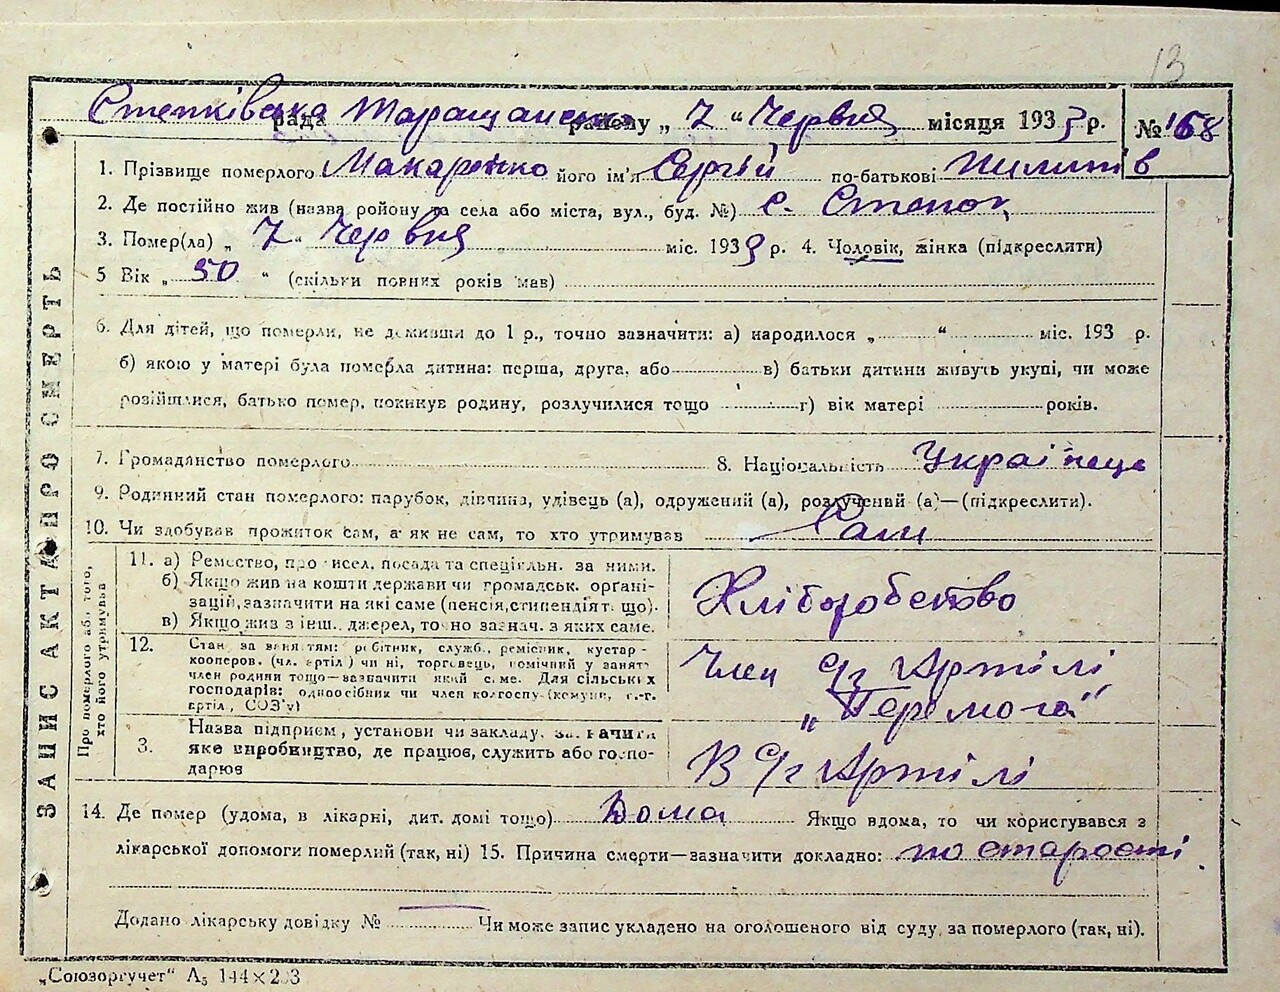 13
Степківська рада Таращанського району „ 7 “ Червня місяця 1933 р. № 168
1. Прізвище померлого Макаренко його ім'я Сергій по-батькові Пилипів
2. Де постійно жив (назва району та села або міста, вул., буд. №) с. Степок
3. Помер(ла) „ 7 “ Червня міс. 1933 р. 4. Чоловік, жінка (підкреслити)
5 Вік „ 50 “ (скільки повних років мав)
6. Для дітей, що померли, не доживши до 1 р., точно зазначити: а) народилося „ “ міс. 193 р.
б) якою у матері була померла дитина: перша, друга, або в) батьки дитини живуть укупі, чи може
розійшлися, батько помер, покинув родину, розлучилися тощо г) вік матері років.
7. Громадянство померлого 8. Національність Українець
9. Родинний стан померлого: парубок, дівчина, удівець (а), одружений (а), розлучений (а)—(підкреслити).
10. Чи здобував прожиток сам, а як не сам, то хто утримував Сам
ЗАПИС АКТА ПРО СМЕРТЬ
Про померлого або того, хто його утримував
11. а) Ремество, професія, посада та спеціальн. за ними.
б) Якщо жив на кошти держави чи громадськ. органі-
зацій, зазначити на які саме (пенсія, стипендія т. що).
в) Якщо жив з інш. джерел, точно зазнач. з яких саме.
Хліборобство
12. Стан за заняттям: робітник, служб., ремісник, кустар-
кооперов. (чл. артіл) чи ні, торговець, помічний у занят.
член родини тощо—зазначити який саме. Для сільських
господарів: одноосібних чи член колгоспу (комуни, с.-г.
артіл, СОЗ'у)
Член с/г Артілі
„Перемога“
3. Назва підприєм., установи чи закладу, зазначити
яке виробництво, де працює, служить або госпо-
дарює
В с/г Артілі
14. Де помер (удома, в лікарні, дит. домі тощо) Дома Якщо вдома, то чи користувався з
лікарської допомоги померлий (так, ні) 15. Причина смерти—зазначити докладно: по старості.
Додано лікарську довідку № Чи може запис укладено на оголошеного від суду за померлого (так, ні).
„Союзоргучет“ А5 144×203